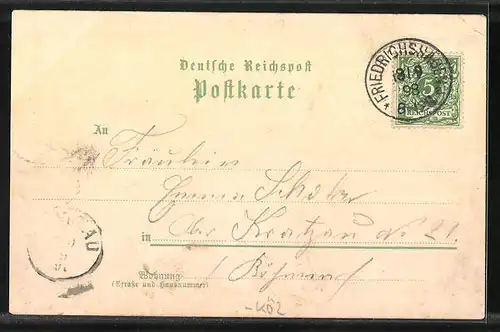 Deutsche Reichspost
Postkarte
FRIEDRICHSHAFEN
98
5
REICHSPOST
An
Fräulein
Emma
Ober Kratzau No 21.
in
Wohnung
(Straße und Hausnummer)
(Böhmen)
AU
-KÖ2